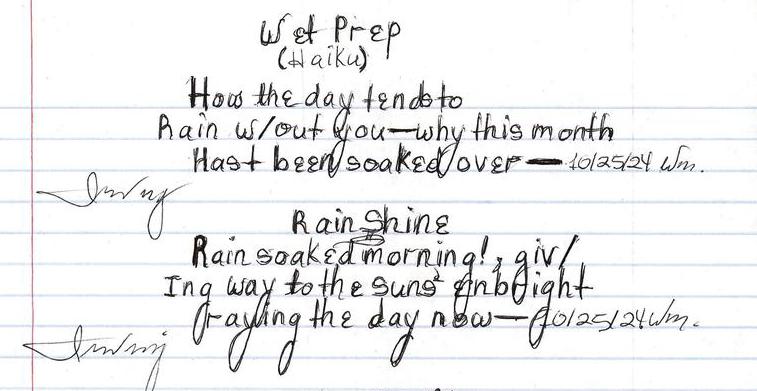 Wet Prep
(Haiku)
How the day tends to
Rain w/out you—why this month
Hast been soaked over — 10/25/24 Wm.
Rain Shine
Rain soaked morning!, giv/
Ing way to the suns'
the day now— 10/25/24 Wm.